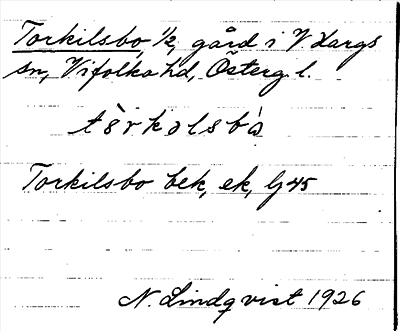 Torkilsbo, 1/2, gård i V Hargs
sn, Vifolka hd, Österg. l.
tòrkəlsbò
Torkilsbo bek, ek, Lj 45
N. Lindqvist 1926